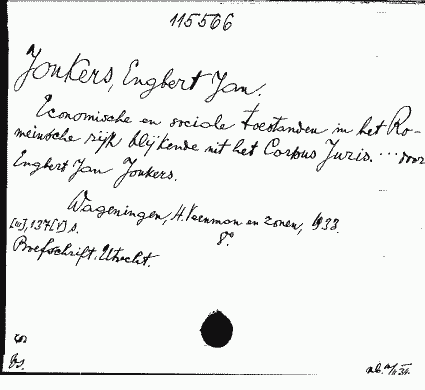 115566
Jonkers, Engbert Jan.
Economische en sociale toestanden in het Ro-
meinsche rijk blijkende uit het Corpus Juris. ... door
Engbert Jan Jonkers.
Wageningen, H. Veenman en zonen, 1933.
8º.
[IV], 137 [1] s.
Proefschrift. Utrecht.